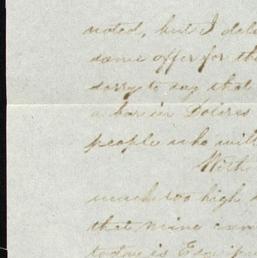 noted, but I
same offer for the
sorry to say that
a bar in Dolores
people who will
With
much too high
that mine can
today is